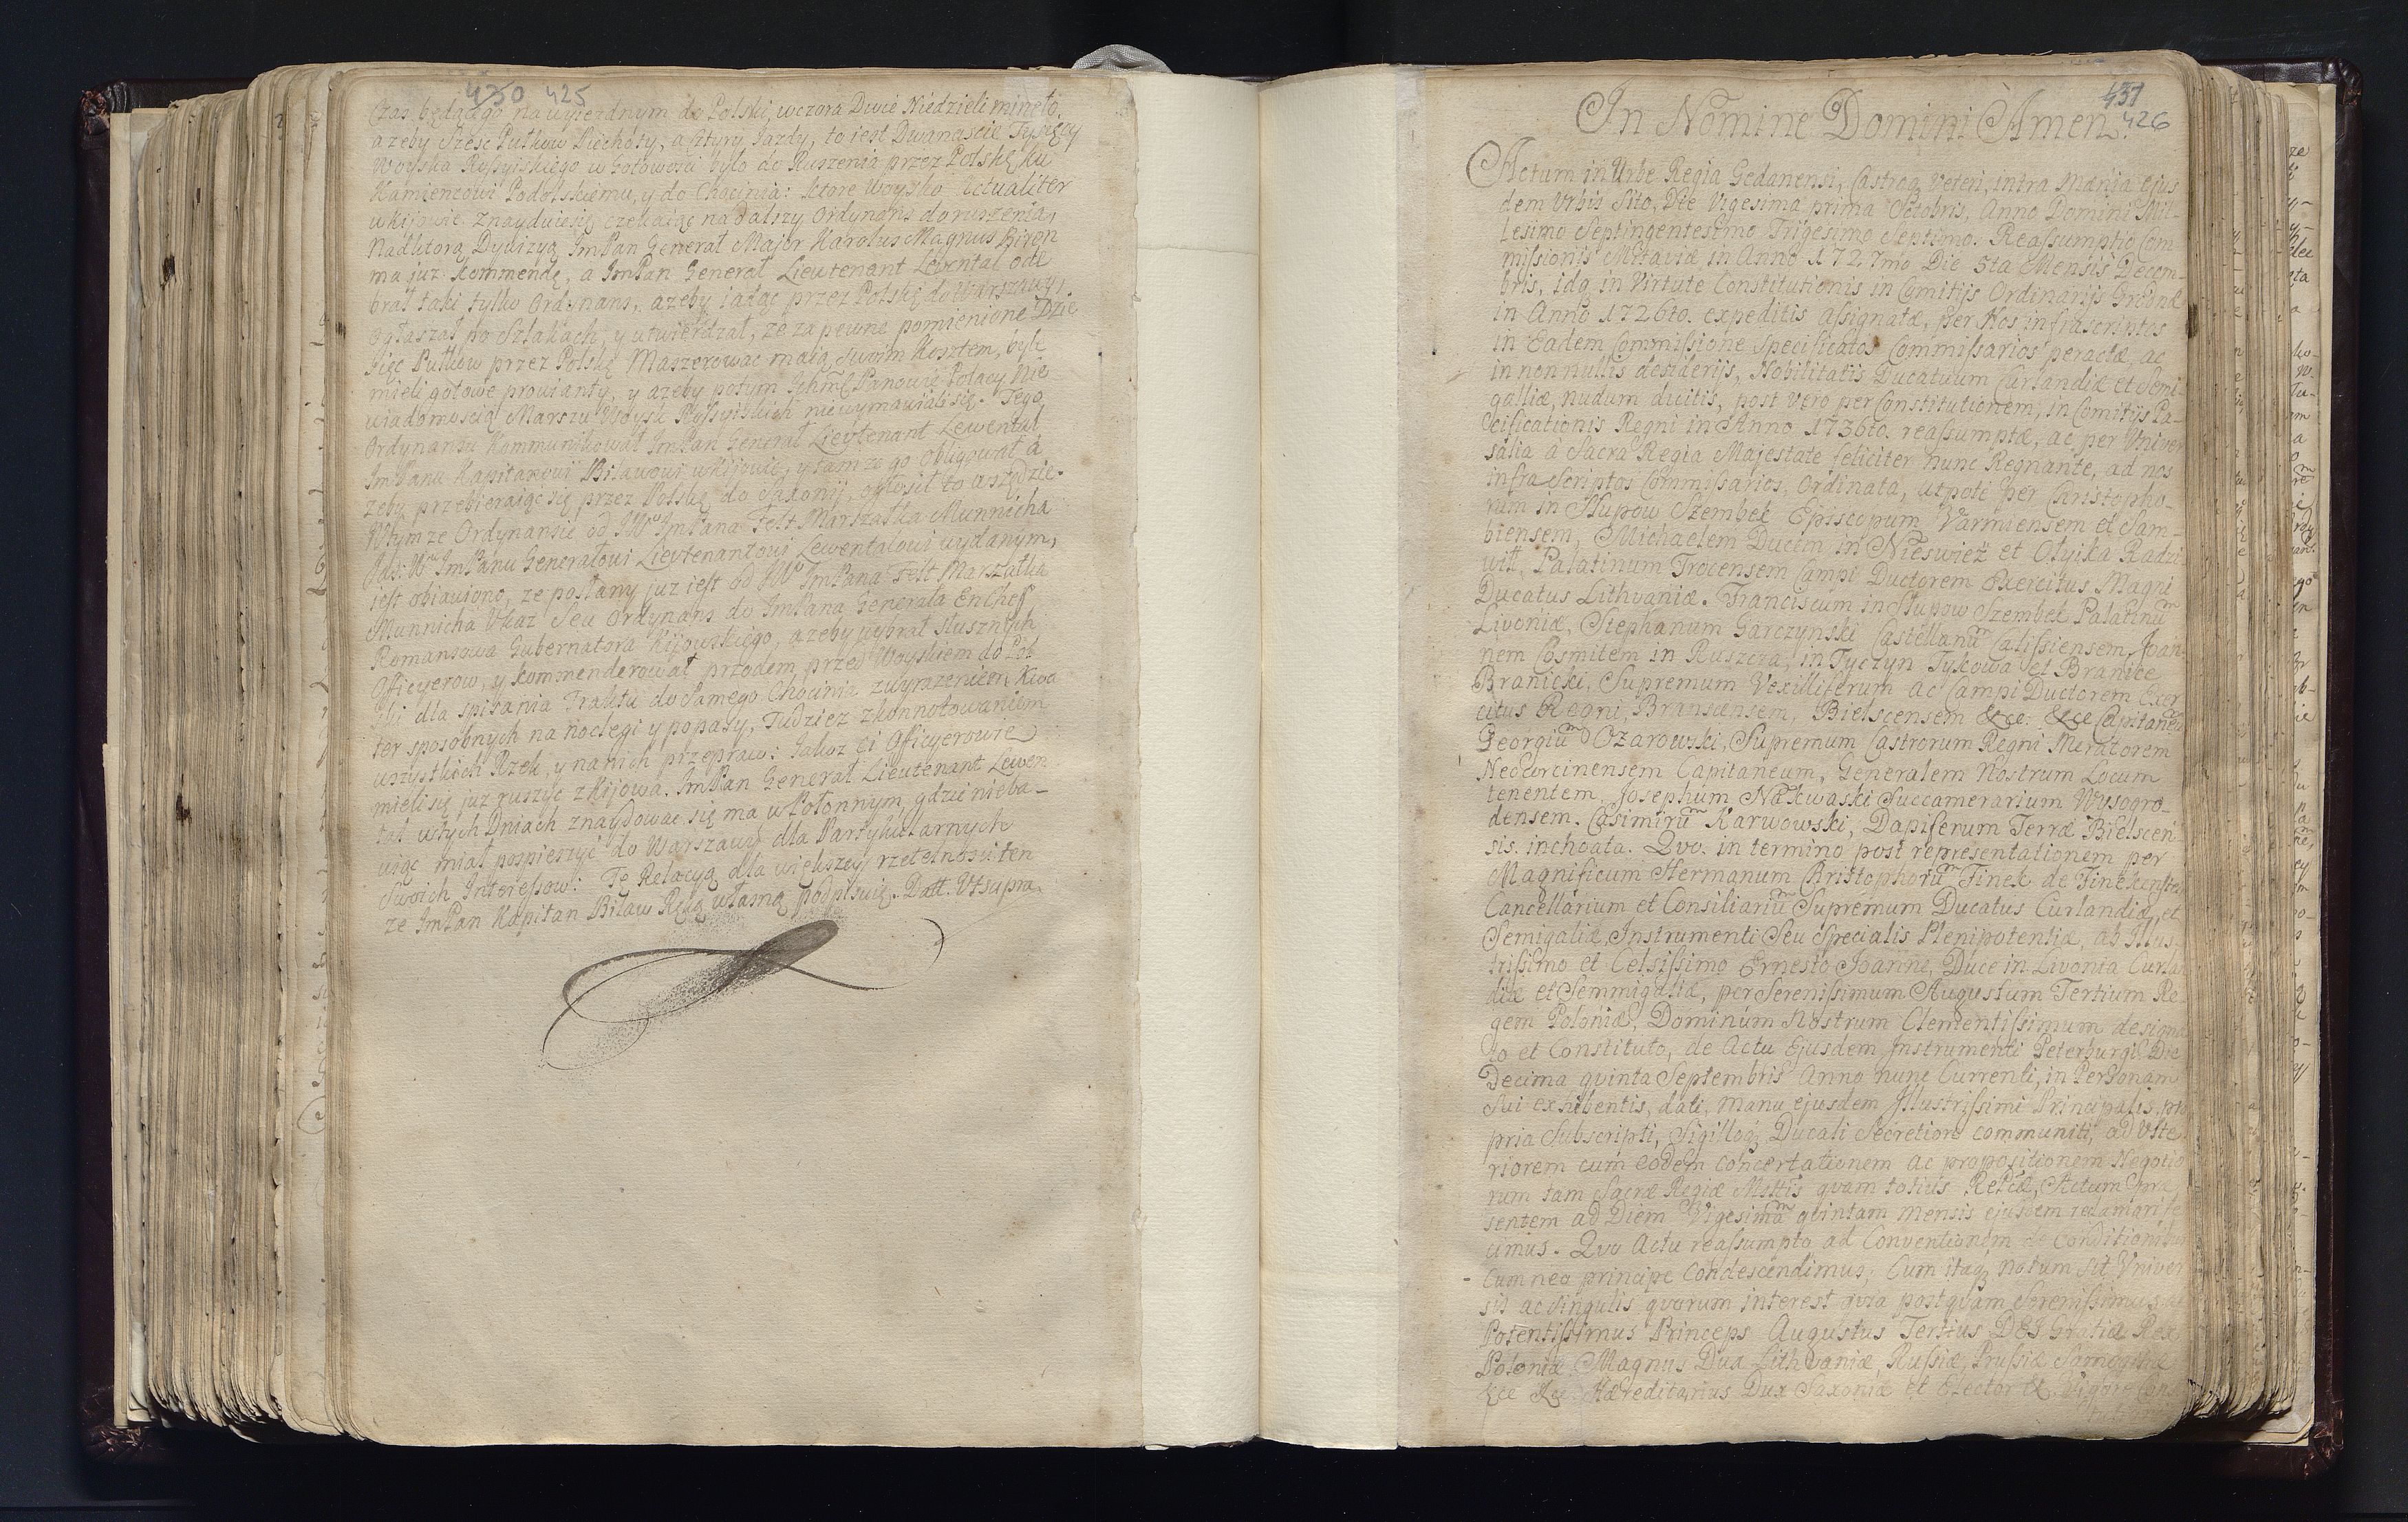 430 425
Czas będącego na wyiezdnym do Polski, wczora Dwie Niedzieli mineło,
azeby Szesc Pułkow Piechoty, a sztyry Jazdy, to jest Dwanascie Tysięcy
Woyska Rossyiskiego w Gotowosci było do Ruszenia przez Polskę ku
Kamiencowi Podolskiemu, y do Chocimia: ktore Woysko Actualiter
w kijowie znayduiesię czekaiąc na dalszy Ordynans do ruszenia,
Nad ktorą Dywizyą ImPan General Major Karolus Magnus Biron
ma juz Kommendę, a ImPan General Lieutenant Lewental ode
brał taki tylko Ordynans, azeby iadąc przez Polskę do Warszawy,
Ogłaszał po Szlakach, y utwierdzał, ze zapewne pomienione Dzie
sięc Pułkow przez Polskę Maszerowac maią swoim Kosztem, byli
mieli gotowe prowianty, y azeby potym Ichmć Panowie Polacy Nie
wiadomoscią Marszu Woysk Rossyiskich niewymawialisię. Tego
Ordynansu Kommunikował ImPan General Lieutenant Lewental
ImPanu Kapitanowi Bilawowi w kijowie, y sam ze go obligował a
zeby przebieraiąc się przez Polskę do Saxonij, ogłosił to wszędzie.
Wtymze Ordynansie od JWo ImPana Felt Marszałka Munnicha
Jas: Wo ImPanu Generałowi Lieutenantowi Lewentalowi wydanym,
jest obiawiono, ze posłany juz jest od JWo ImPana Felt Marszałka
Munnicha Ukaz Seu Ordynans do ImPana Generała Enchef
Romansowa Gubernatora Kijowskiego, azeby wybrał Slusznych
Officyerow, y kommenderował przodem przed Woyskiem do Pol
ski dla spisania Traktu do Samego Chocimia zwyrazeniem Kwa
ter sposobnych na noclegi y popasy, Tudziez zkonnotowaniem
wszystkich Rzek, y na nich przepraw: Jakoz Ci Officyerowie
mieli się juz ruszyc z kijowa. ImPan General Lieutenant Lewen
tal wtych Dniach znaydowac się ma w Połonnym, gdzie nieba-
wiąc miał pospieszyc do Warszawy dla Partykularnych
Swoich Interessow: Tę Relacyą dla większey rzetelnosci ten
ze ImPan Kapitan Bilaw Ręką własną podpisuię. Datt. Vtsupra.
431
426
In Nomine Domini Amen.
Actum in Urbe Regia Gedanensi, Castroq Veteri, intra Mænia ejus
dem Urbis Sito, Die Vigesima prima Octobris, Anno Domini Mil-
lesimo Septingentesimo Trigesimo Septimo. Reassumptio Com
missionis Mitaviæ in Anno 1727mo Die 5ta Mensis Decem-
bris, idq in Virtute Constitutionis in Comitijs Ordinarijs Grodnæ
in Anno 1726to. expeditis assignatæ, per Nos infrascriptos
in Eadem Commissione Specificatos Commissarios peractæ, ac
in non nullis desiderijs, Nobilitatis Ducatuum Curlandiæ et Semi
galliæ, nudum dicitis, post vero per Constitutionem, in Comitijs Pa-
cificationis Regni in Anno 1736to. reassumptæ, ac per Univer
salia à Sacra Regia Majestate feliciter nunc Regnante, ad nos
infra Scriptos Commissarios, Ordinata, utpote per Christopho-
rum in Słupow Szembek Episcopum Varmiensem et Sam-
biensem, Michaelem Ducem in Nieswiez et Olyika Radzi
wiłł, Palatinum Trocensem Campi Ductorem Exercitus Magni
Ducatus Lithvaniæ. Franciscum in Słupow Szembek Palatinum
Livoniæ, Stephanum Garczynski Castellanum Calissiensem, Joan
nem Cosmitem in Ruszcza, in Tyczyn Tykowa et Branice
Branicki, Supremum Vexilliferum ac Campi Ductorem Exer
citus Regni, Branscensem, Bielscensem &ce. &ce Capitaneu
Georgium Ozarowski, Supremum Castrorum Regni Metatorem
Neocorcinensem Capitaneum, Generalem Nostrum Locum
tenentem, Josephum Nakwaski Succamerarium Wysogro-
densem. Casimirum Karwowski, Dapiferum Terræ Bielscen
sis. inchoata. Qvo. in termino post repræsentationem per
Magnificum Hermanum Christophorum Finck de Finckenstei
Cancellarium et Consiliarium Supremum Ducatus Curlandiæ, et
Semigaliæ, Instrumenti Seu Specialis Plenipotentiæ, ab Illus-
trissimo et Celsissimo Ernesto Joanne, Duce in Livonia Curlan
diæ et Semmigaliæ, per Serenissimum Augustum Tertium Re
gem Poloniæ, Dominum Nostrum Clementissimum designa
to et Constituto, de Actu Ejusdem Instrumenti Peterburgi Die
Decima qvinta Septembris Anno nunc Currenti, in Personam
Sui exhibentis, dati, manu ejusdem Illustrissimi Principalis pro
pria Subscripti, Sigilloq Ducali Secretiore communiti, ad Ulte
riorem cum eodem concertationem ac propositionem Negotio
rum tam Sacræ Regiæ Mattis qvam totius Reipcæ, Actum præ
sentem ad Diem Vigesimam qvintam mensis ejusdem reclamari fe
cimus. Qvo Actu reassumpto ad Conventionem de Conditionibus
Cum neo principe Condescendimus; Cum itaq notum sit Univer
sis ac Singulis qvorum interest qvia postqvam Serenissimus ac
Potentissimus Princeps Augustus Tertius DEI Gratia Rex
Poloniæ Magnus Dux Lithvaniæ, Russiæ, Prussiæ Samogitiæ
&ce &ce Hæreditarius Dux Saxoniæ et Elector &. Vigore Cons